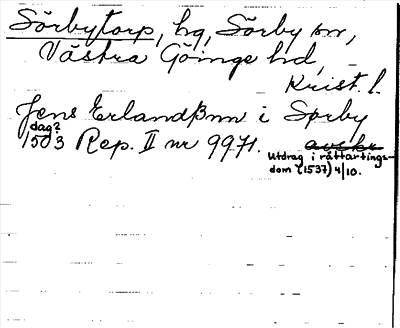 Sörbytorp, hg, Sörby sn,
Västra Göinge hd,
Krist. l.
Jens Erlandßøn i Sørby
dag?
1503 Rep. II nr 9971. avskr
Utdrag i råttartings-
dom (1537) 4/10.